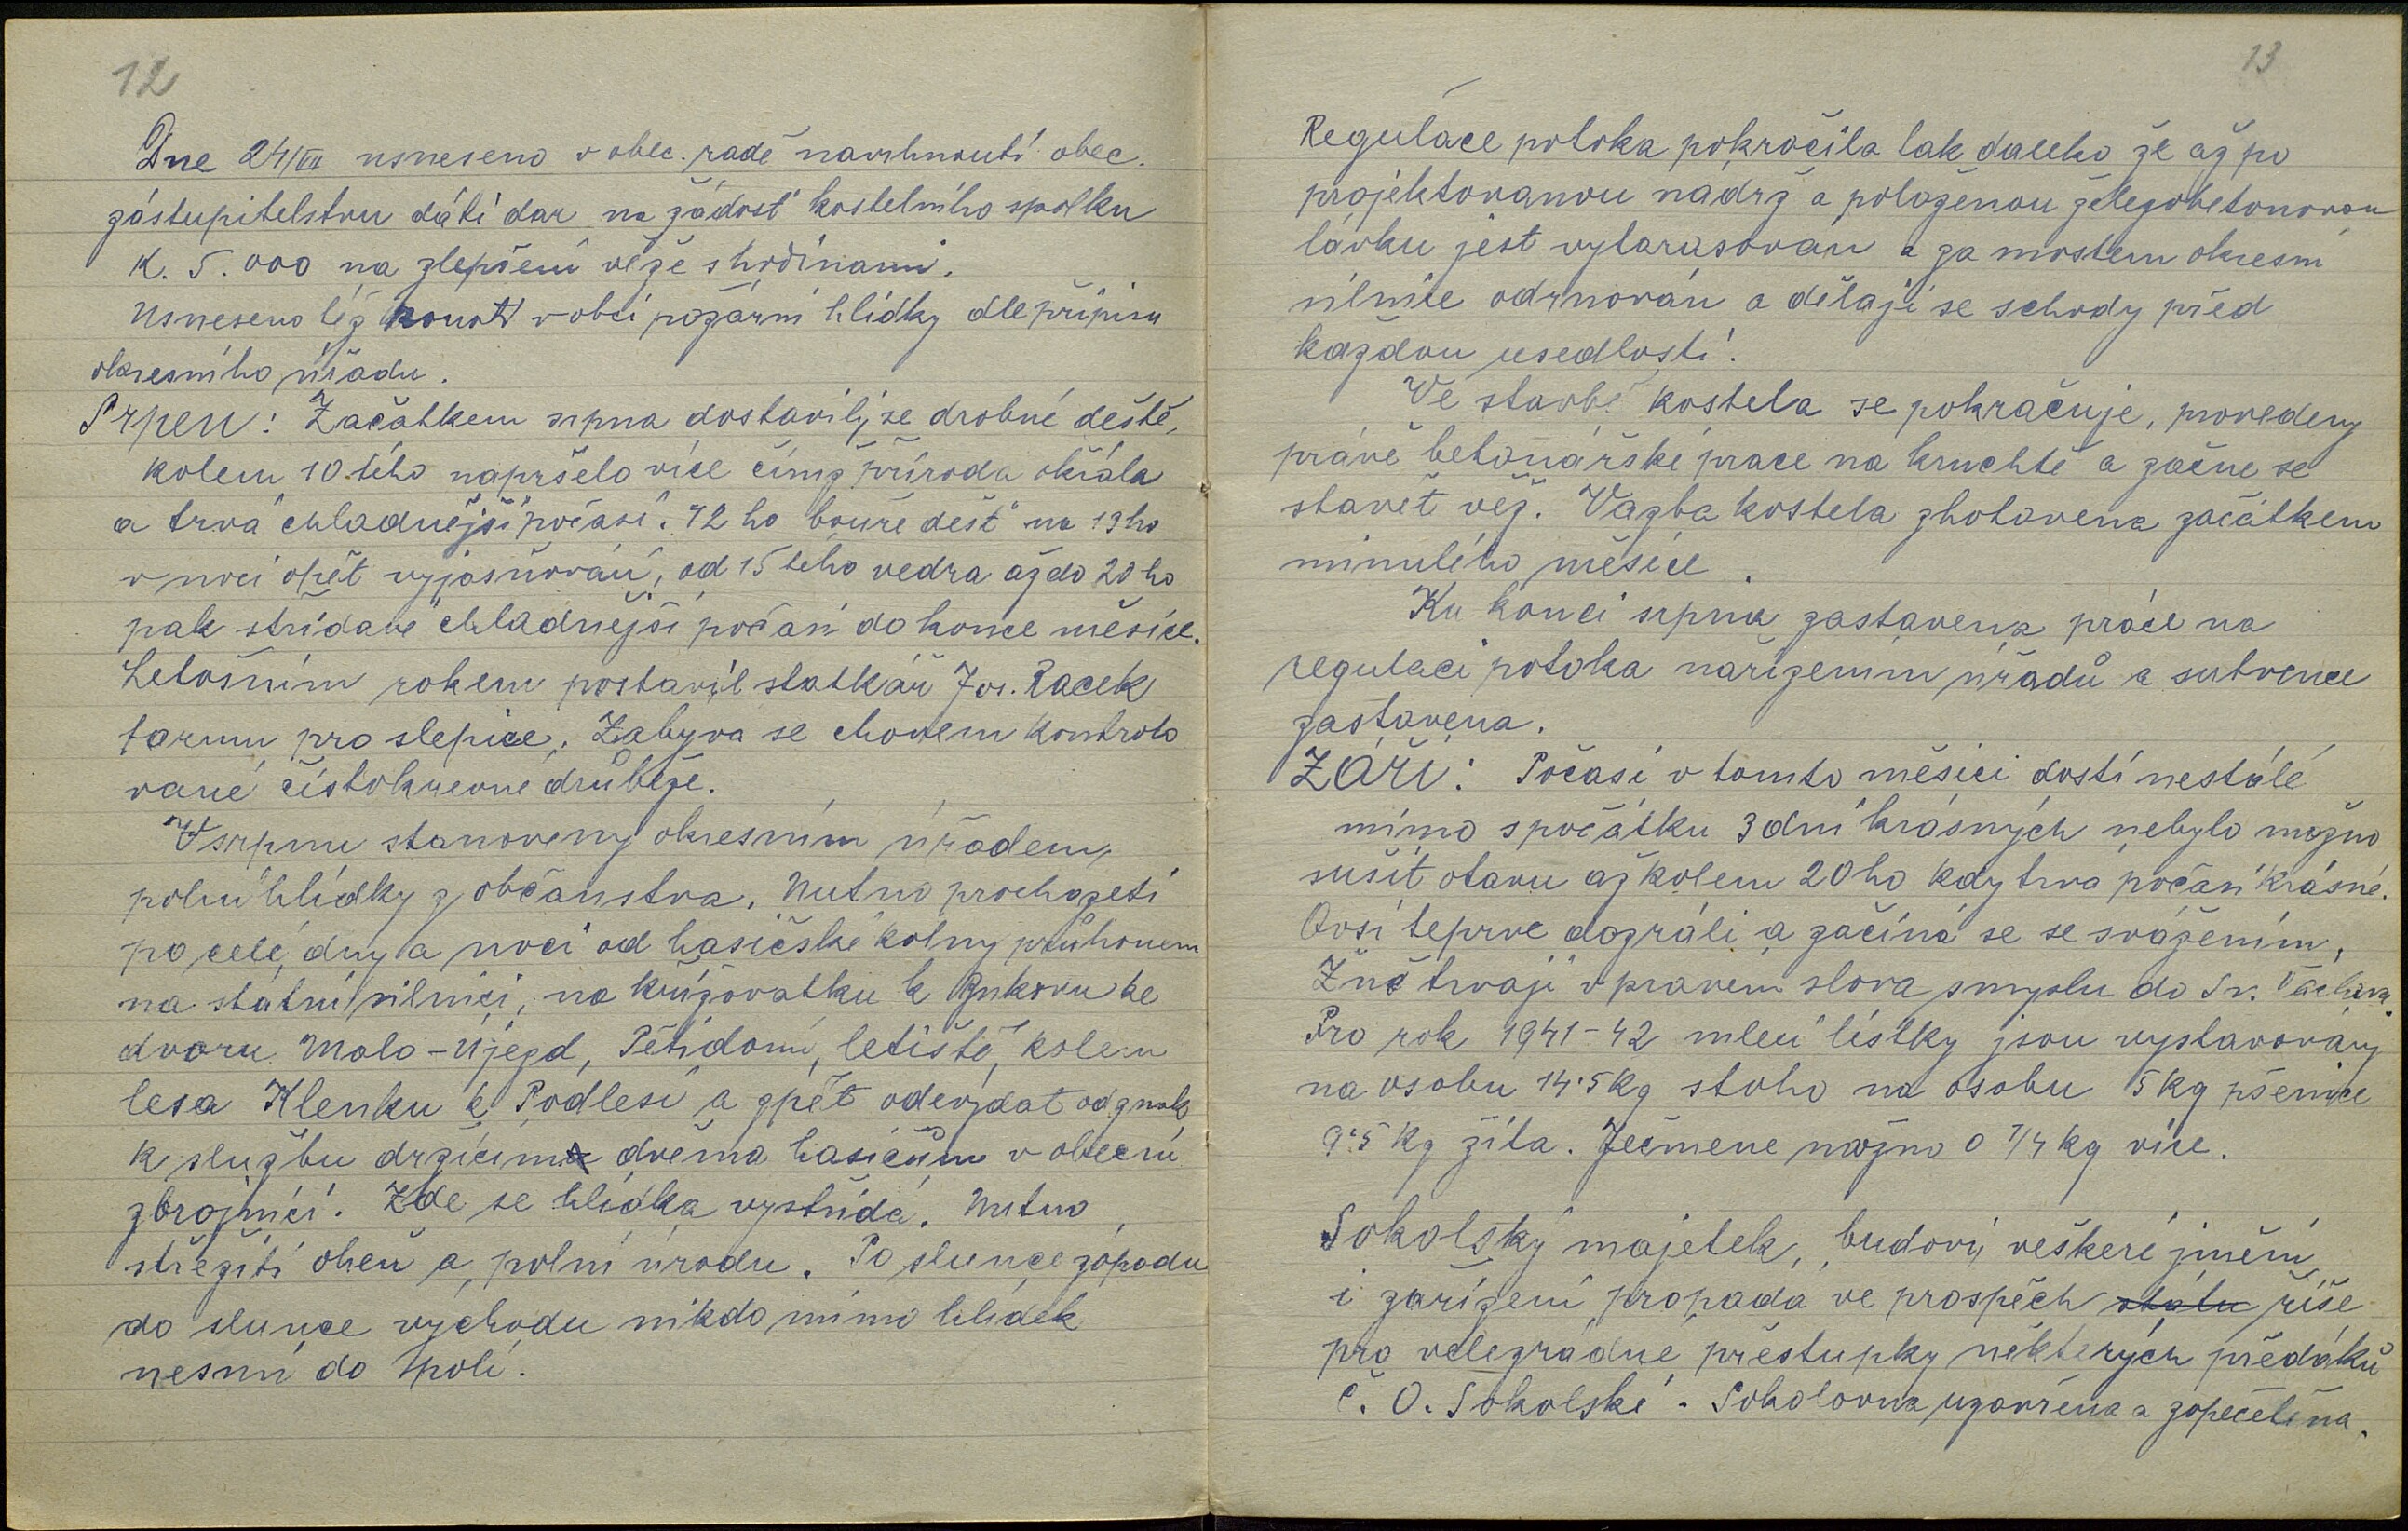 12
Dne 24/VII usneseno v obec. radě navrhnouti obec.
zastupitelstvu dáti dar na žádost kostelního spolku
K. 5.000 na zlepšení věže s hodinami.
Usneseno též konat v obci požární hlídky dle přípisu
okresního úřadu.
Srpen: Začátkem srpna dostavily se drobné deště,
kolem 10.tého napršelo více čímž příroda okřála
a trvá chladnější počasí. 12 ho bouře déšť na 13 ho
v noci opět vyjasňování, od 15 tého vedra až do 20 ho
pak střídavě chladnější počasí do konce měsíce.
Letošním rokem postavil statkář Jos. Racek
farmu pro slepice. Zabýva se chovem kontrolo
vané čistokrevné drůbeže.
V srpnu stanoveny okresním úřadem
polní hlídky z občanstva. Nutno procházeti
po celé dny a noci od hasičské kolny průhonem
na státní silnici, na křižovatku k Bukovu ke
dvoru Malo-Újezd, Pětidomí, letiště, kolem
lesa Klenku k Podlesí a zpět odevzdat odznak
k službu držícím dvěma hasičům v obecní
zbrojnici. Zde se hlídka vystřídá. Nutno
střežiti oheň a polní úrodu. Po slunce západu
do slunce východu nikdo mimo hlídek
nesmí do polí.
13
Regulace potoka pokročila tak daleko že až po
projektovanou nádrž a položenou železobetonovou
lávku jest vytarasován a za mostem okresní
silnice odrnován a dělají se schody před
každou usedlostí.
Ve stavbě kostela se pokračuje, provedeny
právě betonářské prace na kruchtě a začne se
stavět věž. Vazba kostela zhotovena začátkem
minulého měsíce.
Ku konci srpna zastavena práce na
regulaci potoka nařízením úřadů a subvence
zastavena.
Září: Počasí v tomto měsíci dosti nestálé
mimo spočátku 3 dní krásných nebylo možno
sušit otavu až kolem 20 ho kdy trva počasí krásné.
Ovsi teprve dozráli a začíná se se svážením.
Žně trvají v pravém slova smyslu do Sv. Václava.
Pro rok 1941-42 mlecí lístky jsou vystavovány
na osobu 14.5 kg z toho na osobu 5 kg pšenice
9.5 kg žita. Ječmene možno o 1/4 kg více.
Sokolský majetek, budovy veškeré jmění
i zařízení propadá ve prospěch státu říše
pro velezrádne přestupky některých předáků
Č. O. Sokolské. Sokolovna uzavřena a zapečetěna.